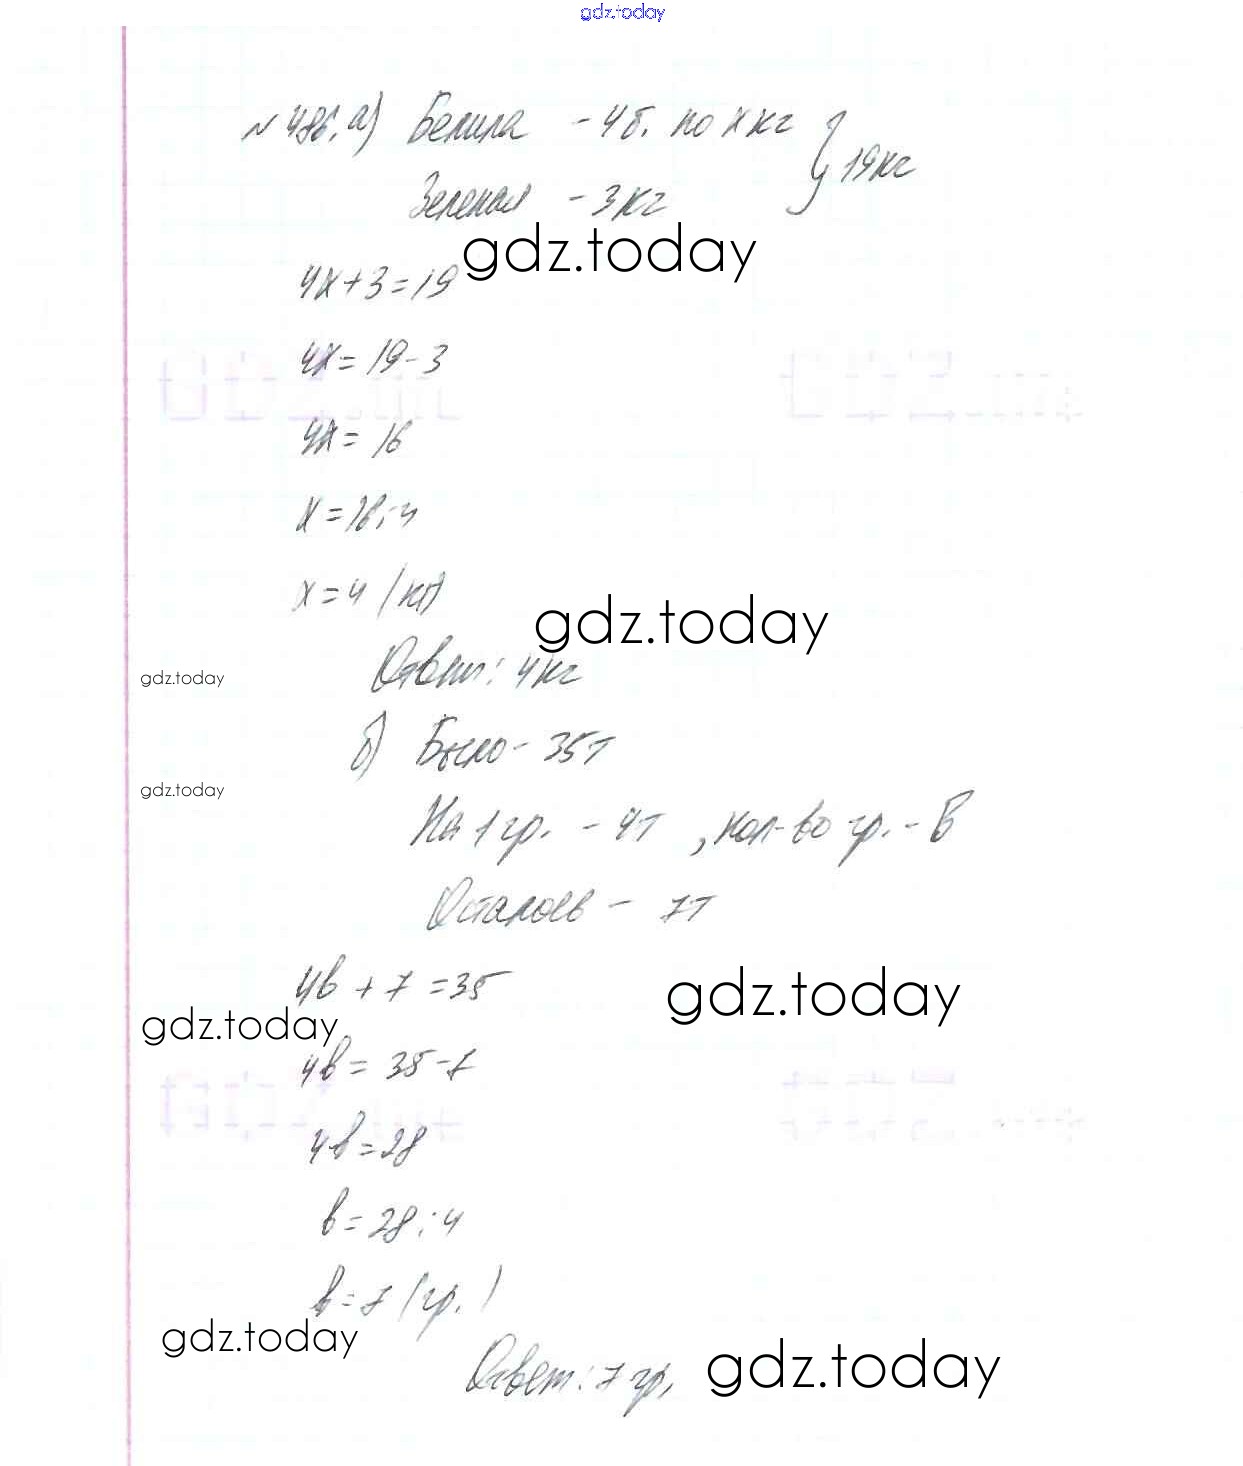 gdz.today
№ 486. а) Белила - 4б. по x кг } 19 кг
Зеленая - 3 кг
gdz.today
4x+3=19
4x= 19-3
4x= 16
x=16:4
x=4 (кг)
gdz.today
Ответ: 4кг
gdz.today
б) Было - 35т
gdz.today
На 1 гр. - 4т , кол-во гр. - в
Осталось - 7т
4в + 7 =35
gdz.today
gdz.today
4в= 35-7
4в=28
в=28:4
в=7 (гр.)
gdz.today
Ответ: 7 гр.
gdz.today